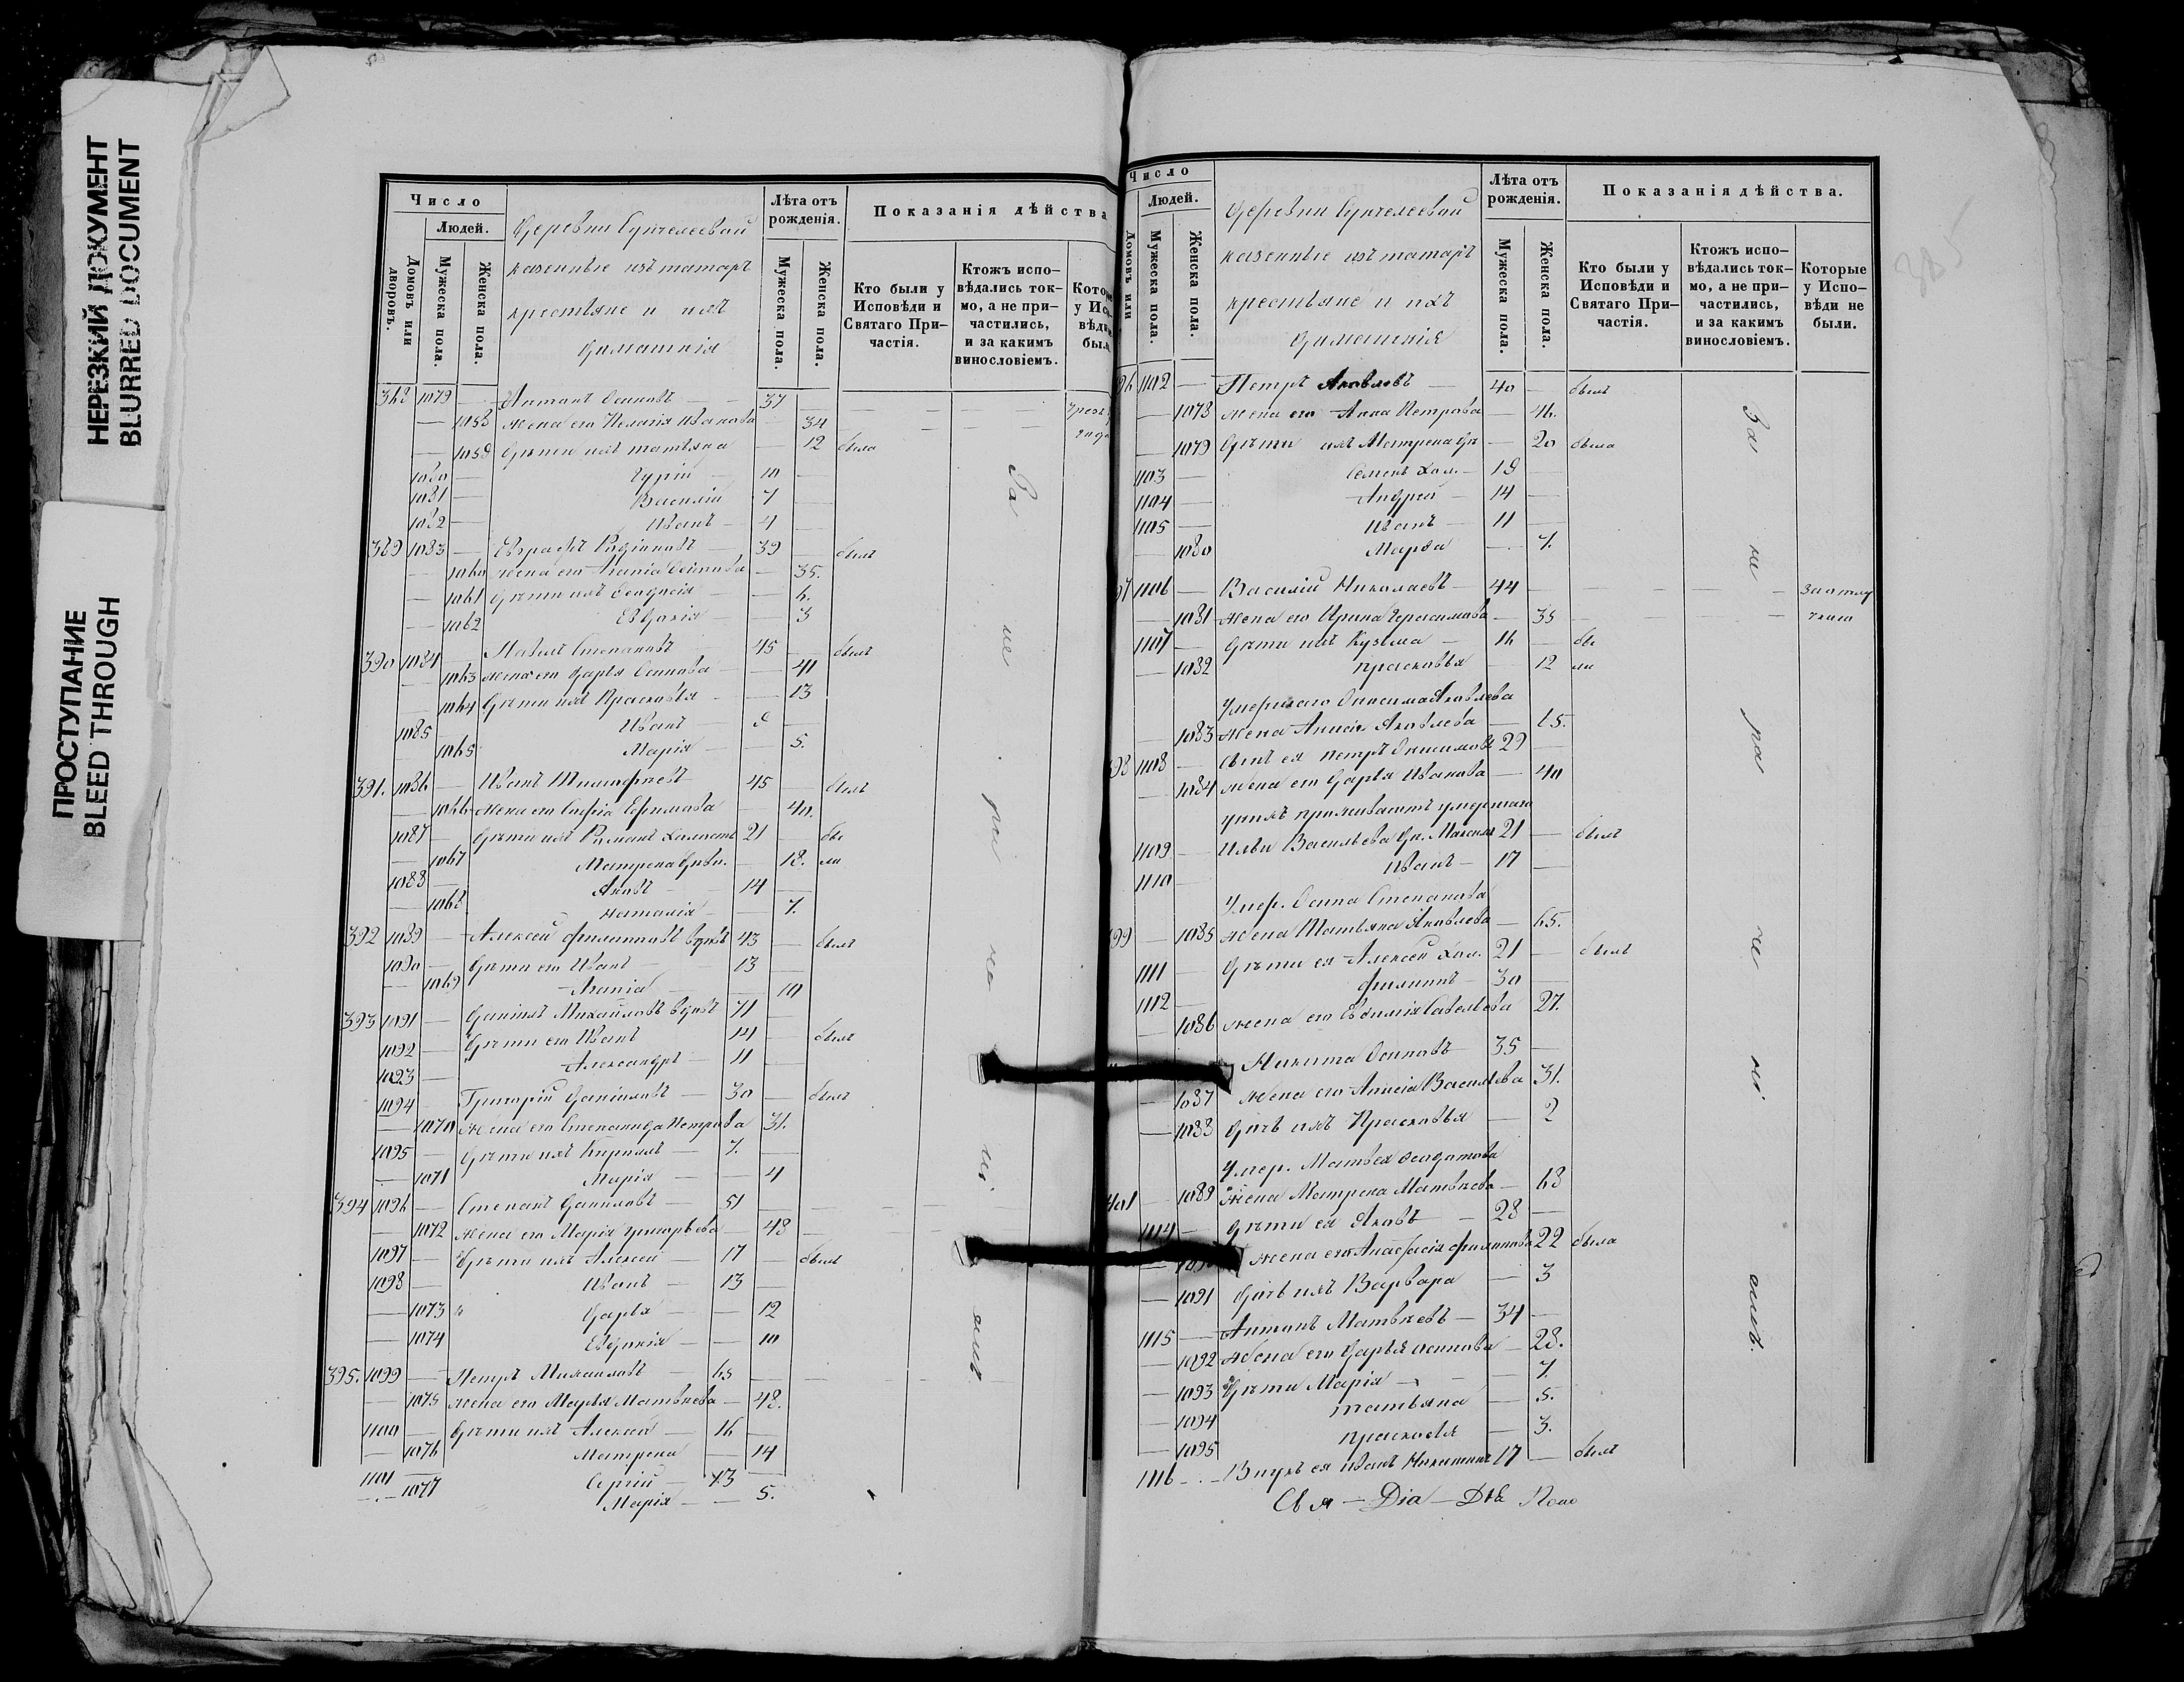 НЕРЕЗКИЙ ДОКУМЕНТ
BLURRED DOCUMENT
ПРОСТУПАНИЕ
BLEED THROUGH
Число
Людей.
Домовъ или дворовъ.
Мужеска пола.
Женска пола.
Деревни
казенные изъ татаръ
крестьяне и ихъ
домашнія
Лѣта отъ рожденія.
Мужеска пола.
Женска пола.
Показанія дѣйства
Кто были у Исповѣди и Святаго Причастія.
Ктожъ исповѣдались токмо, а не причастились, и за какимъ винословіемъ.
388 1079 — Антонъ Осиповъ — 37
— 1058 жена его Пелагія Иванова — 34
— 1059 Дѣти ихъ Татьяна — 12 была
1080 — Гурій — 10 —
1081 — Василій 7 —
1082 — Иванъ — 4 —
389 1083 — Евграфъ Родіоновъ 39 — былъ
— 1060 жена его Агапія Осипова — 35.
— 1061 Дѣти ихъ Феодосія — 6.
— 1062 Евдокія — 3
390 1084 — Степановъ 45 — былъ
— 1063 жена его Дарья Осипова — 41
— 1064 Дѣти ихъ Прасковья — 13
1085 — Иванъ — 8 —
1065 Марія — 5.
391. 1086 — Иванъ Тимофѣевъ 45 — былъ
— 1066 жена его Софія Ефимова — 40.
1087 — Дѣти ихъ Романъ Холостъ 21 — бы
— 1067 Матрена Дѣв. — 18. ли
1088 — Яковъ — 14 —
— 1068 Наталія — 7.
392 1089 — Алексей Филипповъ вдовъ 43 — былъ
1090 — Дѣти его Иванъ — 13 —
— 1069 Агапія — 10
393 1091 — Даніилъ Михайловъ вдовъ 71 —
1092 — Дѣти его Иванъ 14 — былъ
1093 — Александръ — 11 —
1094 — Григорій Даніиловъ — 30 — былъ
— 1070 жена его Степанида Петрова 31.
1095 — Дѣти ихъ Кириллъ — 7. —
— 1071 Марія — 4
394 1096 — Степанъ Даниловъ — 51
— 1072 жена его Марія Григорьева — 48 —
1097 — Дѣти ихъ Алексей — 17 — былъ
1098 — Иванъ — 13 —
— 1073 Дарья — 12
— 1074 Евдокія — 10
395. 1099 — Петръ Михаиловъ — 65
— 1075 жена его Марья Матвѣева — 48.
1100 — Дѣти ихъ Алексей — 16 —
— 1076 Матрена — 14
1101 — Сергій — 13
— 1077 Марія — 5.
Число
Людей.
Домовъ или
Мужеска пола.
Женска пола.
Деревни
казенные изъ татаръ
крестьяне и ихъ
домашнія
Лѣта отъ рожденія.
Мужеска пола.
Женска пола.
Показанія дѣйства.
Кто были у Исповѣди и Святаго Причастія.
Ктожъ исповѣдались токмо, а не причастились, и за какимъ винословіемъ.
Которые у Исповѣди не были.
385
1102 — Петръ Яковлевъ — 40 — былъ
— 1078 жена его Анна Петрова — 46.
— 1079 Дѣти ихъ Матрена Дѣ — 20 была
1103 — Семенъ Хол. — 19 —
1104 — Андрей — 14 —
1105 — Иванъ — 11 —
— 1080 Марѳа — 7.
1106 — Василій Николаевъ — 44
— 1081 жена его Ирина Герасимова — 35
1107 — Дѣти ихъ Кузьма — 16 — бы
— 1082 Прасковья — 12 ли
Умершаго Онисима Яковлева
— 1083 жена Анисія Яковлева — 65.
1108 — Сынъ ея Петръ Онисимовъ 29 —
— 1084 жена его Дарья Иванова — 40
у нихъ проживаютъ умершаго
1109 — Ильи Васильева Дѣ. Максимъ 21 — былъ
1110 — Иванъ — 17 —
Умер. Осипа Степанова
— 1085 жена Татьяна Яковлева — 65.
1111 — Дѣти ея Алексей Хол. 21 — былъ
1112 — Филиппъ — 30 —
— 1086 жена его Евфимія Савельева 27.
Никита Осиповъ 35 —
— 1087 жена его Анисія Васильева 31.
— 1088 Дочь ихъ Прасковья — 2
Умер. Матвея Феодотова
401 — 1089 жена Матрена Матвѣева — 63
1114 — Дѣти ея Яковъ — 28 —
жена его Анастасія Филиппова 22 была
— 1091 Дочь ихъ Варвара — 3
1115 — Антонъ Матвѣевъ — 34 —
— 1092 жена его Дарья Осипова — 28.
— 1093 Дѣти Марія — 7.
— 1094 Татьяна — 5.
— 1095 Прасковья — 3.
1116 — Внукъ ея Иванъ Никитинъ 17 — былъ